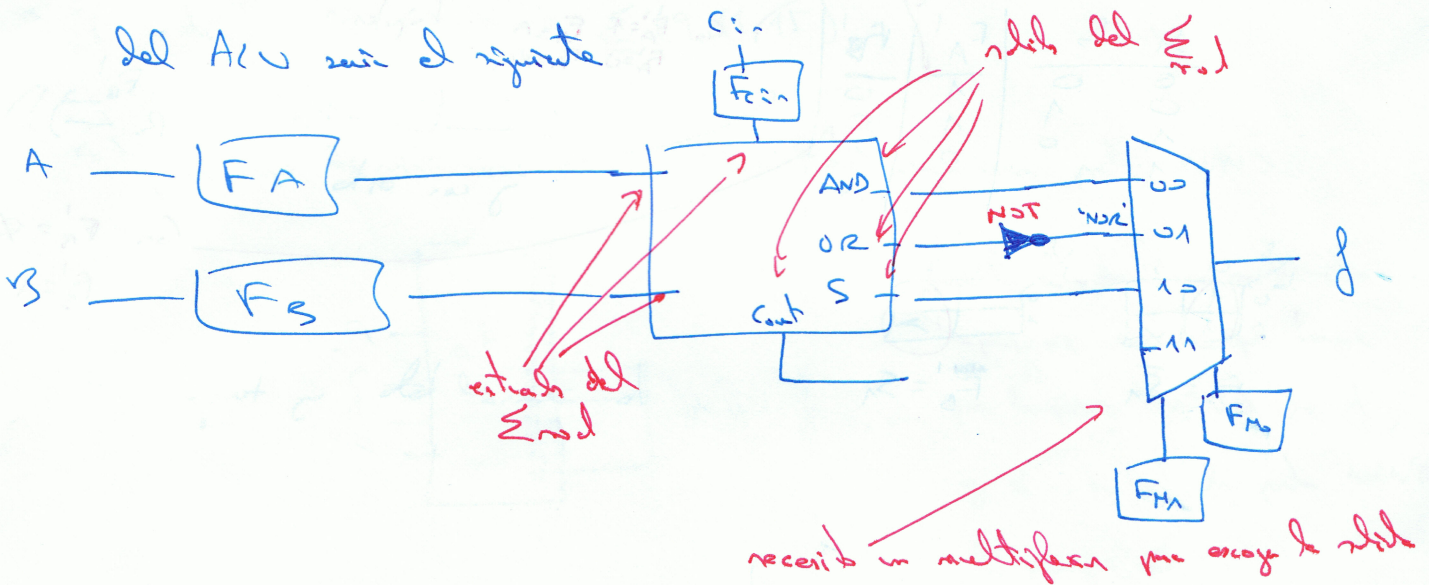 del ALU seria el siguiente
Cin
Fcin
salida del Σ mod
A
FA
B
FB
AND
OR
S
Cout
NOT
'NOR'
00
01
10
11
f
entrada del
Σ mod
FM0
FM1
necesito un multiplexor para escoger la salida